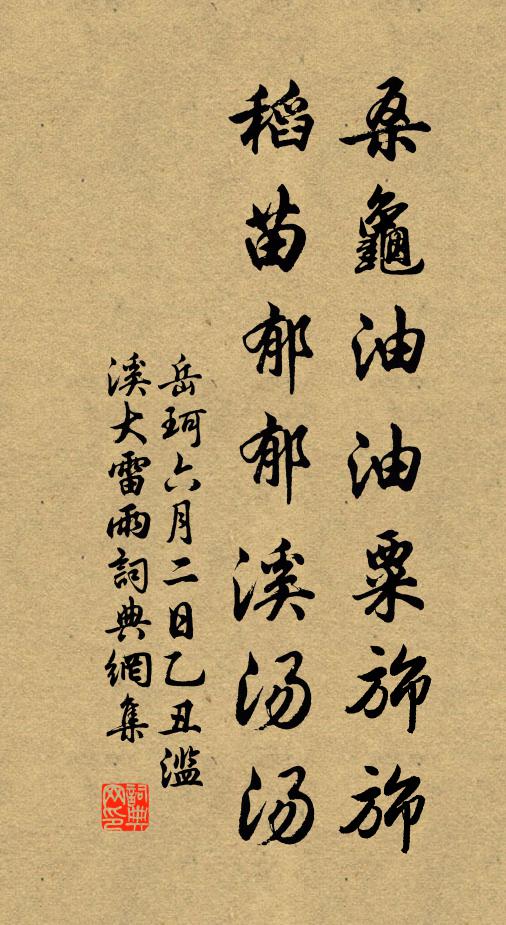 桑龜油油粟旆旆
稻苗郁郁溪汤汤
岳珂六月二日乙丑滥
溪大雷雨詞典網集
詞典
网印